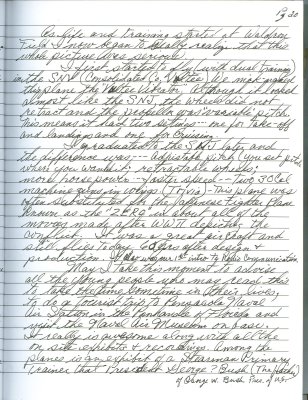 Pg 30
As life and training started at Waldron
Field I now began to really realize that this
whole picture was serious!
I first started to fly (with dual training)
in the SNV (Consolidated Co, Vultee) We nick-named
this plane the Vultee Vibrator. Although it looked
almost like the SNJ, the wheels did not
retract and the propeller was variable pitch.
This meant it had two settings -- one for take-off
and landings and one for cruising.
I graduated to the SNJ later and
the difference was -- adjustable pitch (you set pitch
where you wanted it, retractable wheels,
more horse power - faster speed - two 30 Cal
machine guns in wings (Trivia) - This plane was
often substituted for the Japanese fighter plane
known as the "ZERO" in about all of the
movies made after WW II depicting the
conflict. It was a great aircraft and
still flies today, years after design &
production. was my 1st intro to Radio Communication.
May I take this moment to advise
all the young people who may read this
to take the time sometime in their lives,
to do a tourist trip to Pensacola Naval
Air Station in the Panhandle of Florida and
visit the Naval Air Museum on base.
It really is awesome along with all the
on site exhibits & recordings. Among the
planes is an exhibit of a Stearman Primary
trainer that President George Bush (The father)
of George W. Bush Pres. of U.S.